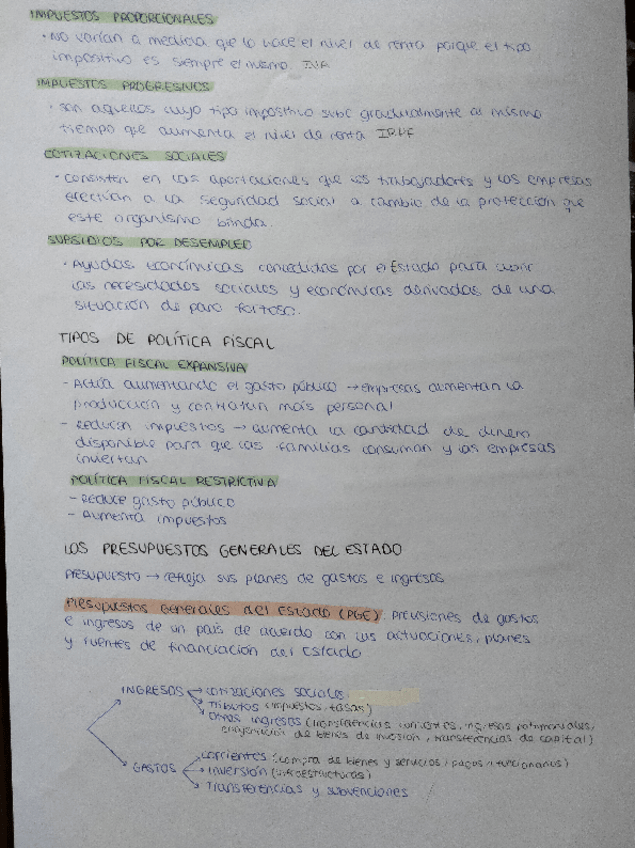 IMPUESTOS PROPORCIONALES
· No varían a medida que lo hace el nivel de renta porque el tipo
impositivo es siempre el mismo. IVA
IMPUESTOS PROGRESIVOS
· son aquellos cuyo tipo impositivo sube gradualmente al mismo
tiempo que aumenta el nivel de renta IRPF
COTIZACIONES SOCIALES
· consisten en las aportaciones que los trabajadores y las empresas
efectúan a la seguridad social a cambio de la protección que
este organismo brinda.
SUBSIDIOS POR DESEMPLEO
· Ayudas económicas concedidas por el Estado para cubrir
las necesidades sociales y económicas derivadas de una
situación de paro fortoso.
TIPOS DE POLÍTICA FISCAL
POLÍTICA FISCAL EXPANSIVA
- Actúa aumentando el gasto público → empresas aumentan la
producción y contratan más personal
- Reducen impuestos → aumenta la cantidad de dinero
disponible para que las familias consuman y las empresas
inviertan
POLÍTICA FISCAL RESTRICTIVA
- Reduce gasto público
- Aumenta impuestos
LOS PRESUPUESTOS GENERALES DEL ESTADO
PRESUPUESTO → refleja sus planes de gastos e ingresos
Presupuestos Generales del Estado (PGE): previsiones de gastos
e ingresos de un país de acuerdo con las actuaciones, planes
y fuentes de financiación del Estado
INGRESOS → cotizaciones sociales
→ Tributos (impuestos, tasas)
→ Otros ingresos (transferencias corrientes, ingresos patrimoniales,
enajenación de bienes de inversión, transferencias de capital)
GASTOS → corrientes (compra de bienes y servicios, pagos funcionarios)
→ Inversión (infraestructuras)
→ Transferencias y subvenciones